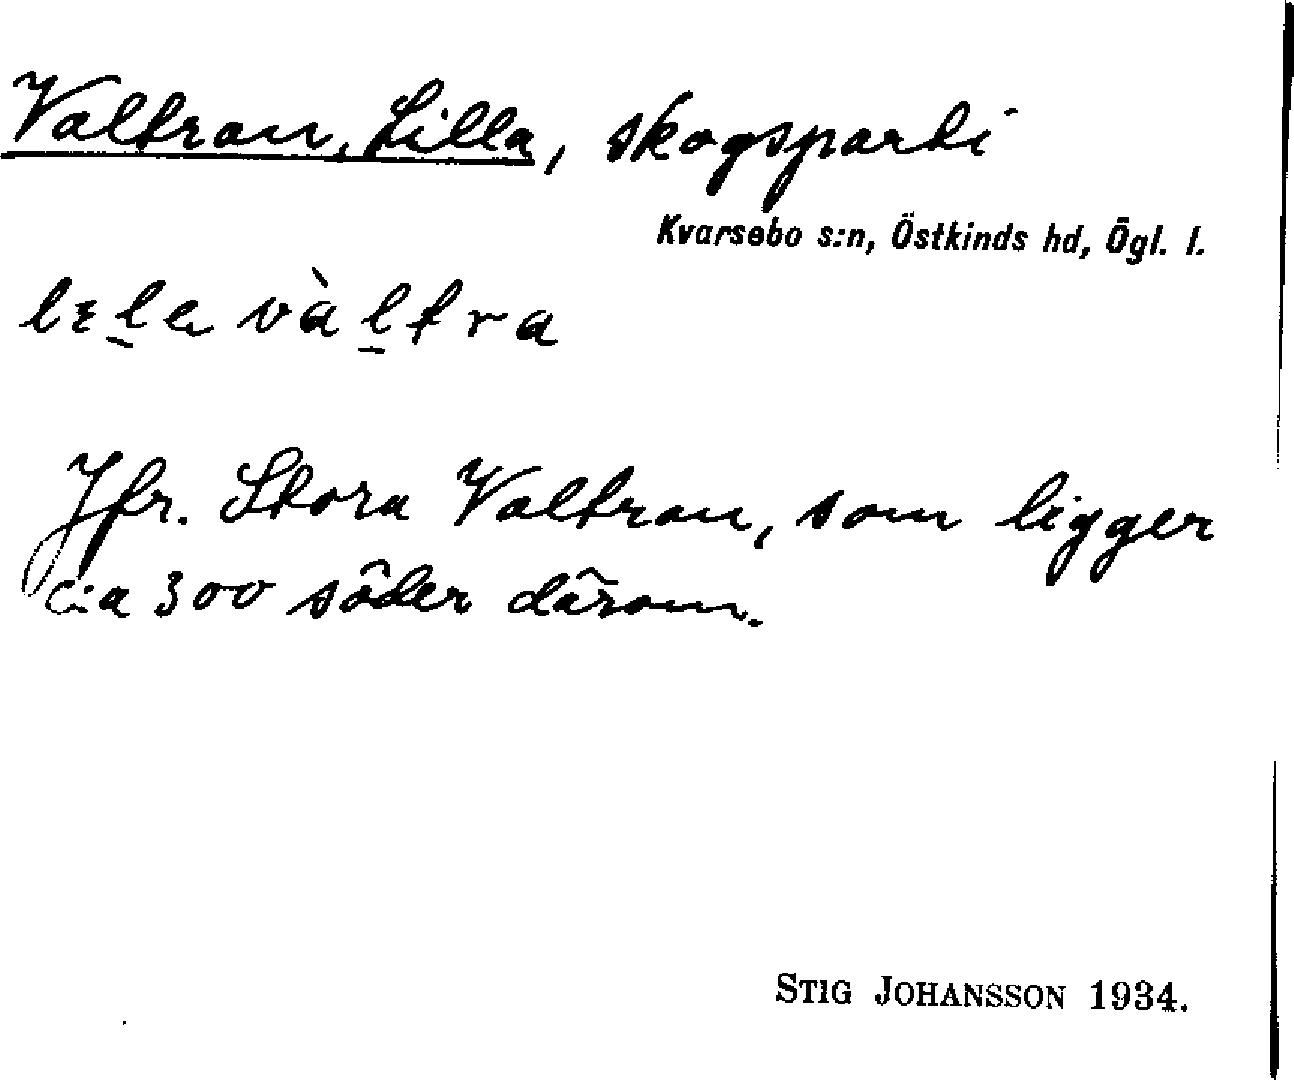 Valtran, Lilla, skogsparti
Kvarsebo s:n, Östkinds hd, Ögl. l.
lɛl̲a vàl̲tra
Jfr. Stora Valtran, som ligger
c:a 300 söder därom.
STIG JOHANSSON 1934.